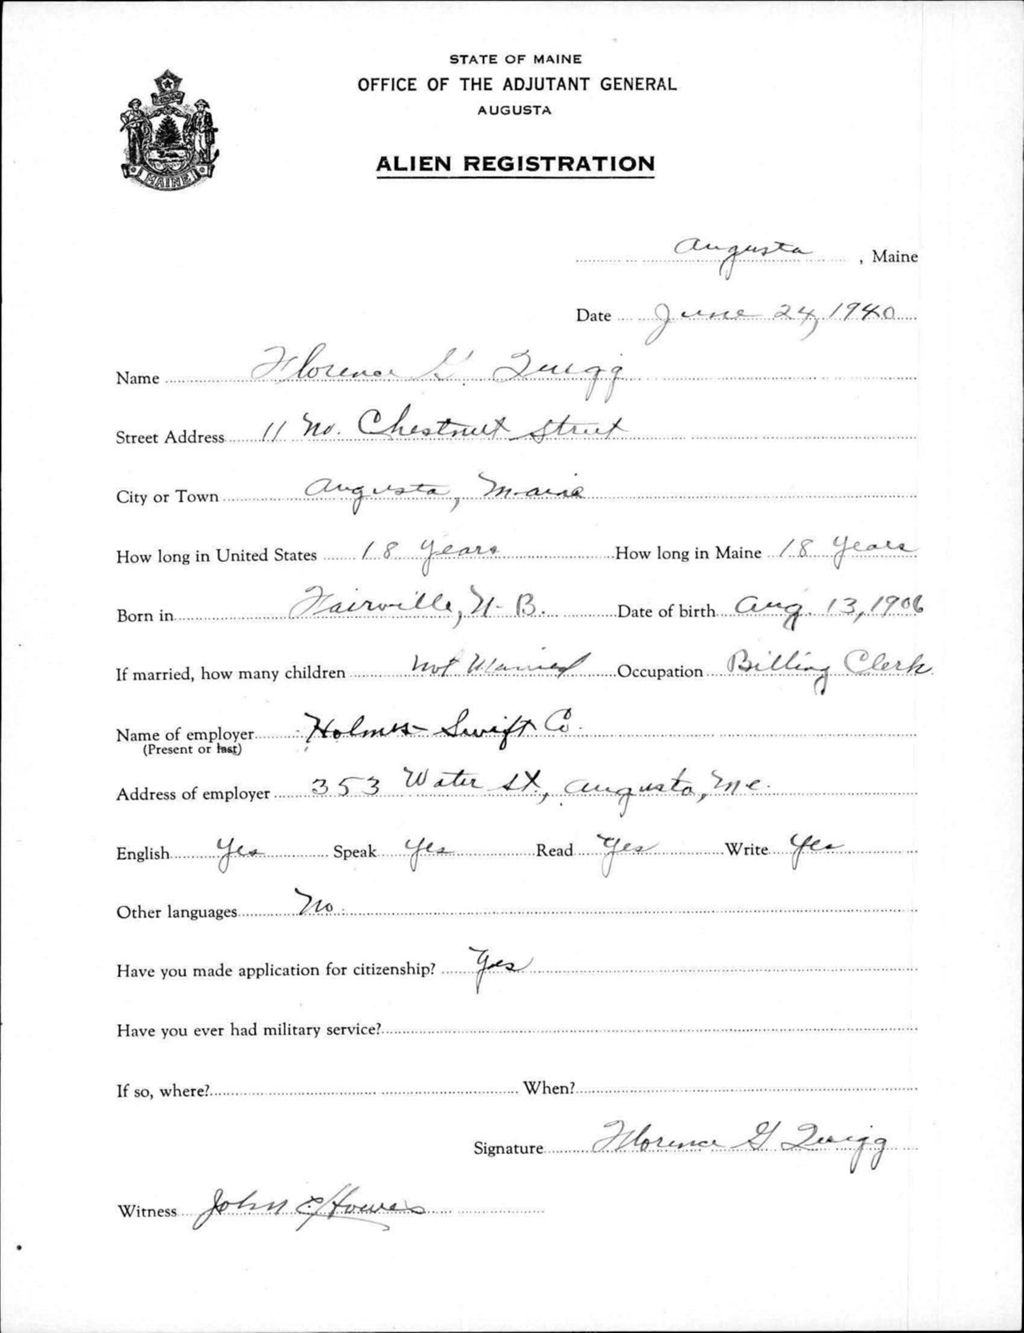 STATE OF MAINE
OFFICE OF THE ADJUTANT GENERAL
AUGUSTA
ALIEN REGISTRATION
MAINE
Augusta, Maine
Date June 24, 1940
Name Florence G. Quigg
Street Address 11 No. Chestnut Street
City or Town Augusta, Maine
How long in United States 18 years How long in Maine 18 years
Born in Fairville, N. B. Date of birth Aug. 13, 1906
If married, how many children Not Married Occupation Billing Clerk
Name of employer Holmes-Swift Co.
(Present or last)
Address of employer 353 Water St., Augusta, Me.
English Yes Speak Yes Read Yes Write Yes
Other languages No.
Have you made application for citizenship? Yes
Have you ever had military service?
If so, where? When?
Signature Florence G Quigg
Witness John E Howes